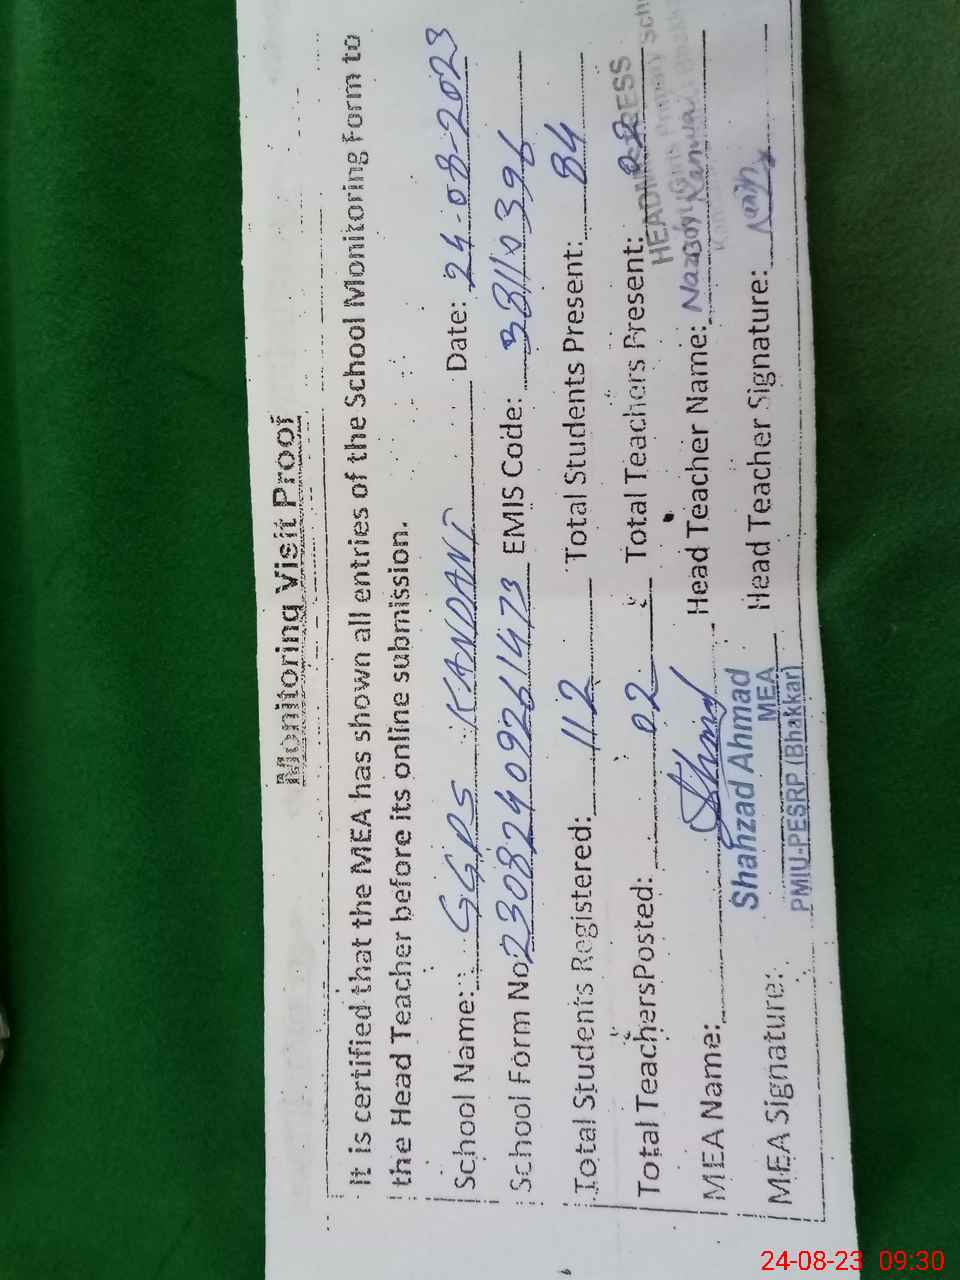 Monitoring Visit Proof
It is certified that the MEA has shown all entries of the School Monitoring Form to
the Head Teacher before its online submission.
School Name: GGPS KANDANI Date: 24-08-2023
School Form No: 23082409261473 EMIS Code: 38110396
Total Students Registered: 112 Total Students Present: 84
Total Teachers Posted: 02 Total Teachers Present: 02
HEADMISTRESS
MEA Name: Head Teacher Name: Kanwal
Shahzad Ahmad
MEA
PMIU-PESRP (Bhakkar)
MEA Signature: Head Teacher Signature:
24-08-23 09:30